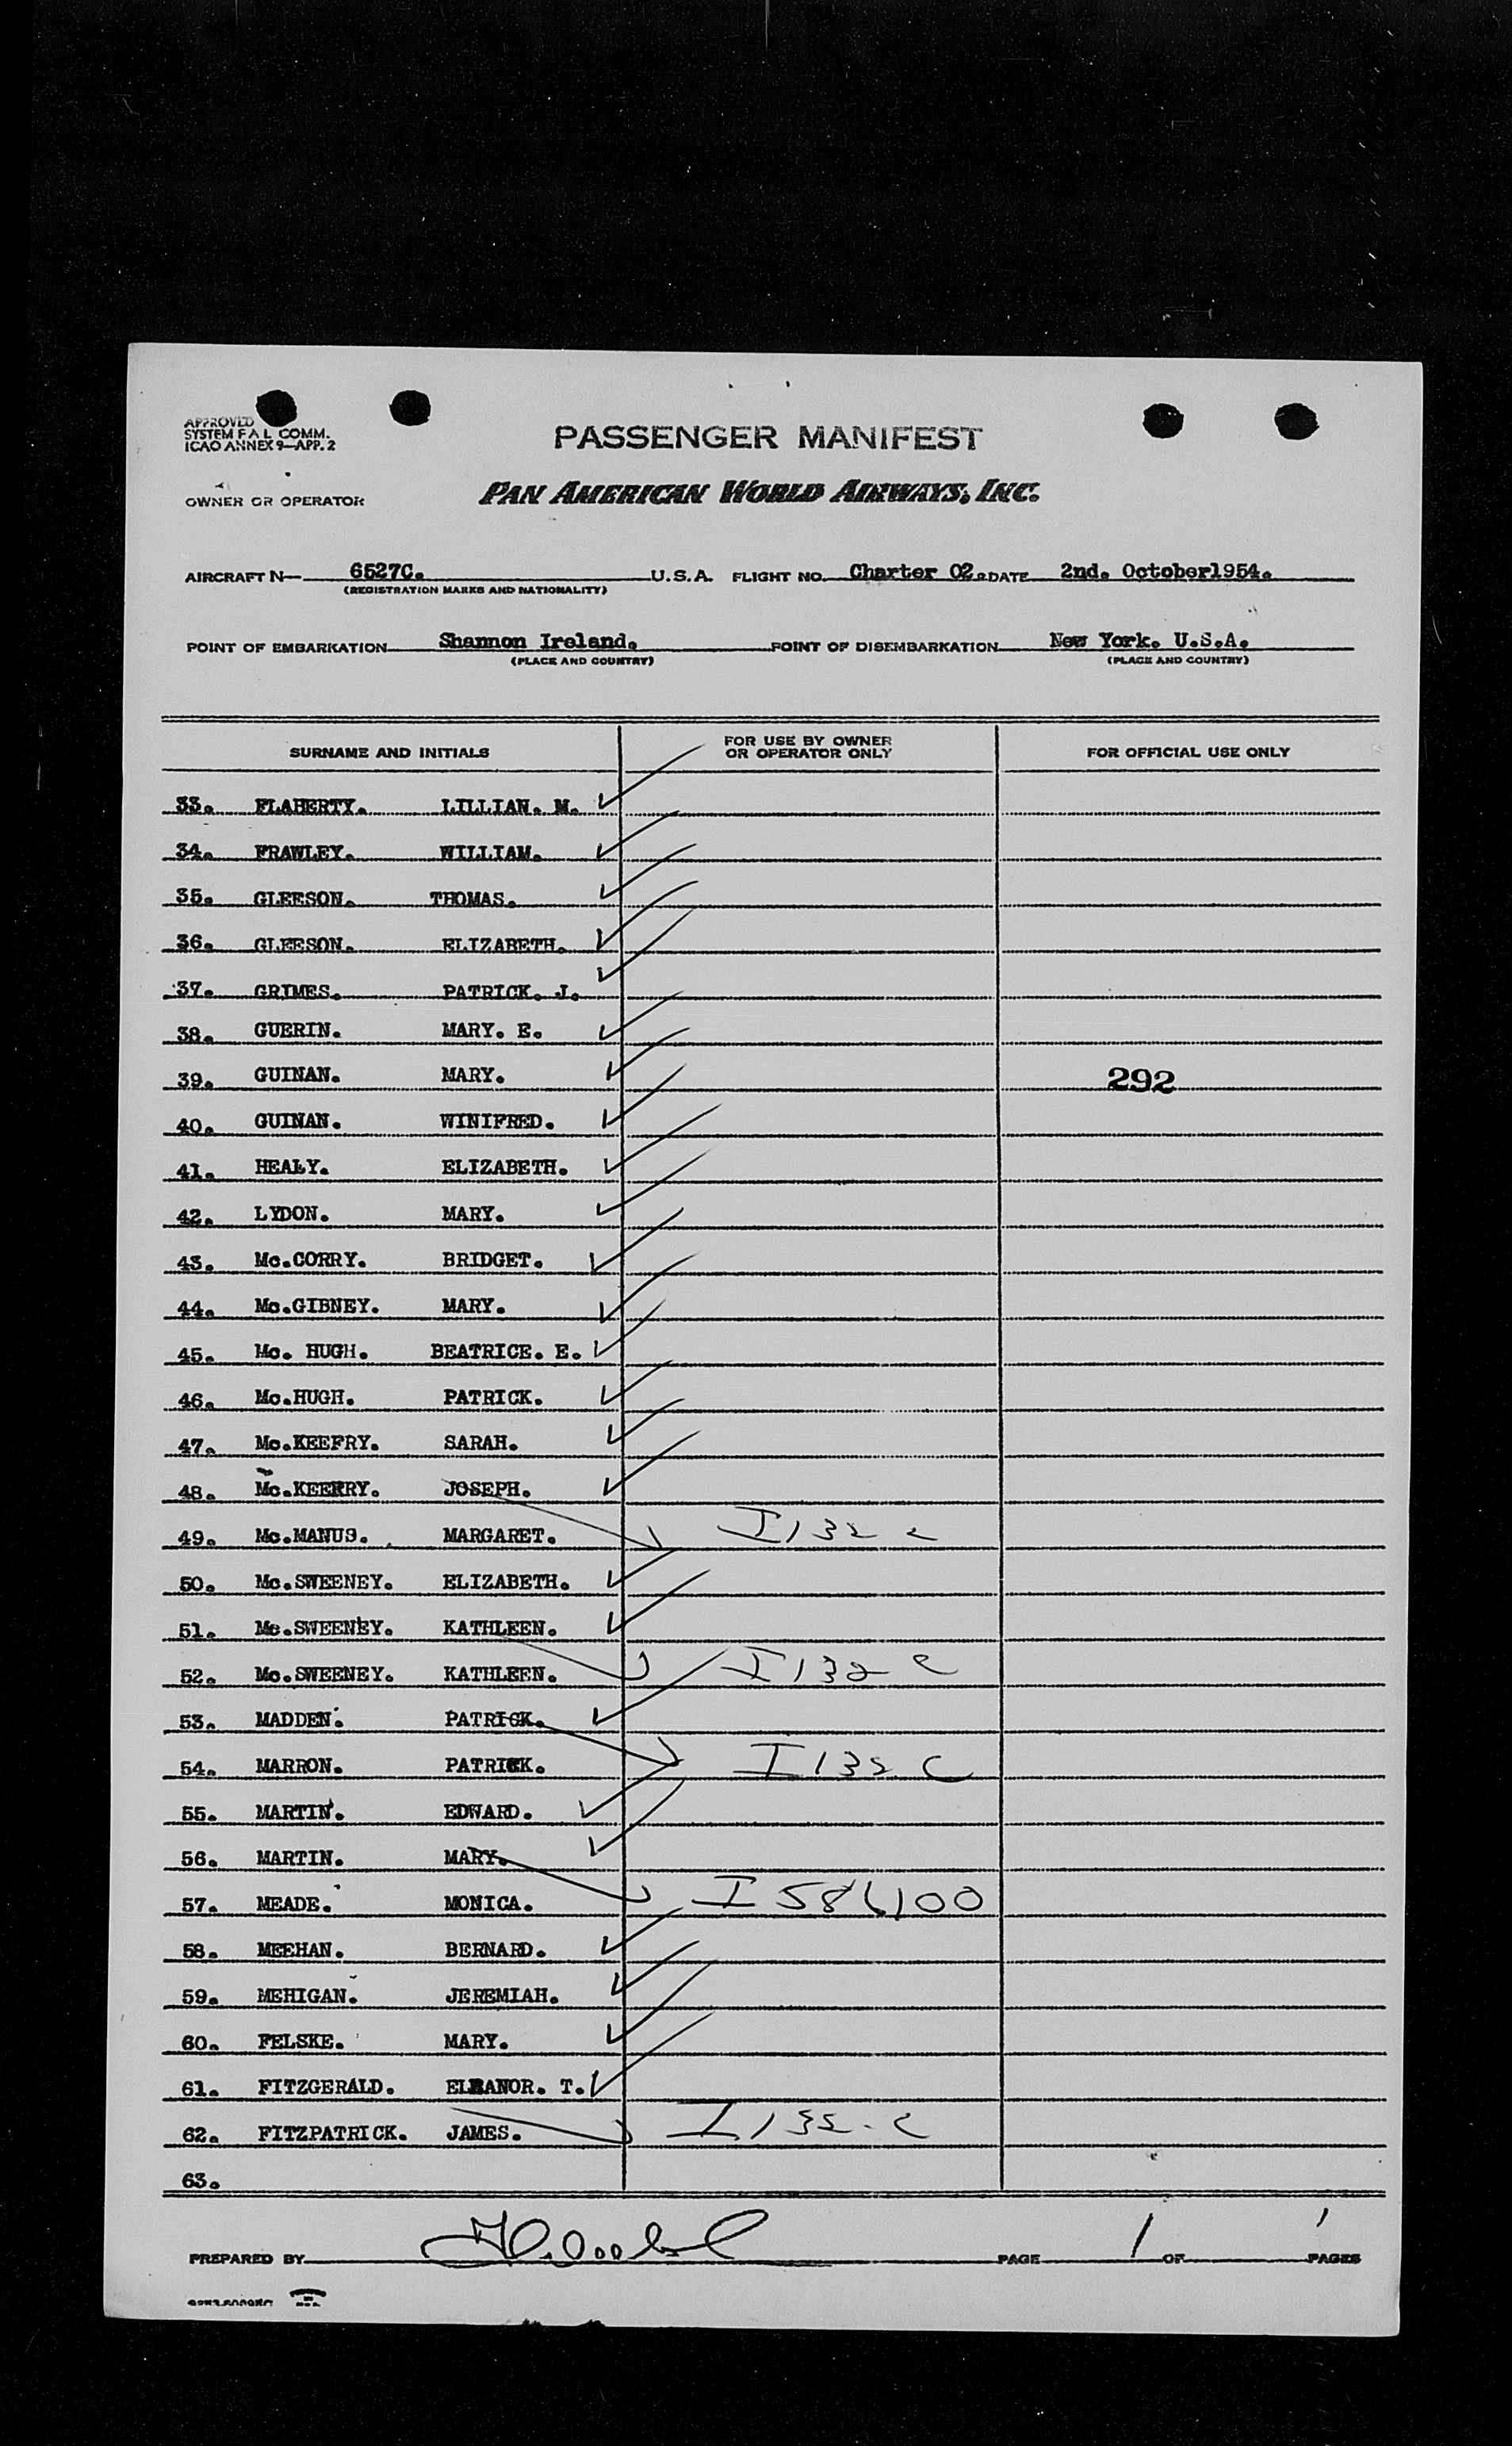 APPROVED
SYSTEM F A L COMM.
ICAO ANNEX 9—APP. 2
PASSENGER MANIFEST
OWNER OR OPERATOR PAN AMERICAN WORLD AIRWAYS, INC.
AIRCRAFT N— 6527C. U.S.A. FLIGHT NO. Charter 02. DATE 2nd. October1954.
(REGISTRATION MARKS AND NATIONALITY)
POINT OF EMBARKATION Shannon Ireland. POINT OF DISEMBARKATION New York. U.S.A.
(PLACE AND COUNTRY) (PLACE AND COUNTRY)
SURNAME AND INITIALS FOR USE BY OWNER OR OPERATOR ONLY FOR OFFICIAL USE ONLY
33. FLAHERTY. LILLIAN. M.
34. FRAWLEY. WILLIAM.
35. GLEESON. THOMAS.
36. GLEESON. ELIZABETH.
37. GRIMES. PATRICK. J.
38. GUERIN. MARY. E.
39. GUINAN. MARY. 292
40. GUINAN. WINIFRED.
41. HEALY. ELIZABETH.
42. LYDON. MARY.
43. Mc.CORRY. BRIDGET.
44. Mc.GIBNEY. MARY.
45. Mc. HUGH. BEATRICE. E.
46. Mc.HUGH. PATRICK.
47. Mc.KEEFRY. SARAH.
48. Mc.KEERRY. JOSEPH.
49. Mc.MANUS. MARGARET. I 132 c
50. Mc.SWEENEY. ELIZABETH.
51. Mc.SWEENEY. KATHLEEN.
52. Mc.SWEENEY. KATHLEEN. I 132 c
53. MADDEN. PATRICK.
54. MARRON. PATRICK. I 132 C
55. MARTIN. EDWARD.
56. MARTIN. MARY.
57. MEADE. MONICA.
58. MEEHAN. BERNARD.
59. MEHIGAN. JEREMIAH.
60. FELSKE. MARY.
61. FITZGERALD. ELEANOR. T.
62. FITZPATRICK. JAMES. I 132-C
63.
PREPARED BY PAGE 1 OF 1 PAGES